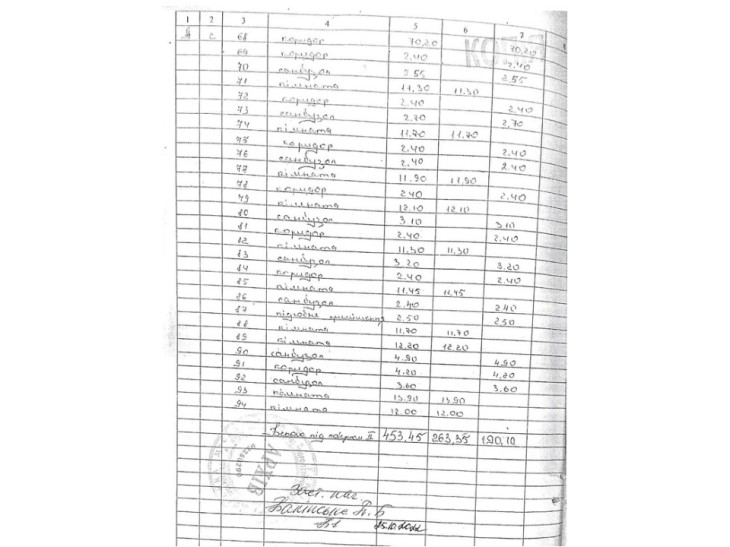 1 2 3 4 5 6 7 8
2 68 коридор 70,20 70,20
69 коридор 2.40 2.40
70 санвузол 2.55 2.55
71 кімната 11,30 11,30
72 коридор 2.40 2.40
73 санвузол 2.70 2,70
74 кімната 11.70 11.70
75 коридор 2.40 2.40
76 санвузол 2.40 2.40
77 кімната 11.90 11,90
78 коридор 2.40 2.40
79 кімната 12.10 12.10
80 санвузол 3.10 3.10
81 коридор 2.40 2.40
82 кімната 11,30 11,30
83 санвузол 3.20 3.20
84 коридор 2.40 2.40
85 кімната 11.45 11.45
86 санвузол 2.40 2.40
87 підсобне приміщення 2.50 2.50
88 кімната 11,70 11,70
89 кімната 12.20 12.20
90 санвузол 4.90 4.90
91 коридор 4.20 4.20
92 санвузол 3.60 3.60
93 кімната 13.90 13.90
94 кімната 12.00 12.00
Всього під поверхом II 453,45 263,35 190,10
АРХІВ
Заст. нач.
25.10.2022